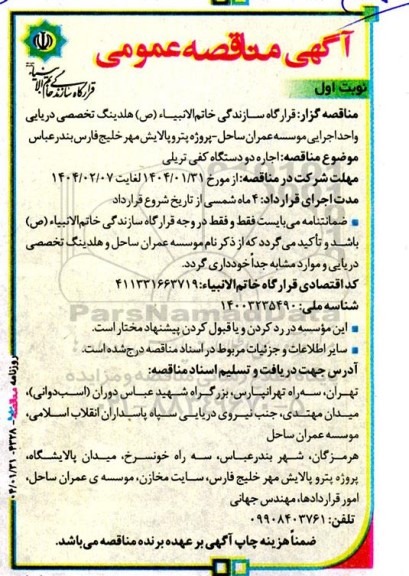 آگهی مناقصه عمومی
قرارگاه سازندگی خاتم الانبیاء
نوبت اول
مناقصه گزار: قرارگاه سازندگی خاتم‌الانبیـاء (ص) هلدینگ تخصصی دریایی
واحد اجرایی موسسه عمران ساحل-پروژه پترو پالایش مهر خلیج فارس بندرعباس
موضوع مناقصه: اجاره دو دستگاه کفی تریلی
مهلت شرکت در مناقصه: از مورخ ۱۴۰۴/۰۱/۳۱ لغایت ۱۴۰۴/۰۲/۰۷
مدت اجرای قرارداد: ۴ ماه شمسی از تاریخ شروع قرارداد
■ ضمانتنامه می‌بایست فقط و فقط در وجه قرارگاه سازندگی خاتم‌الانبیاء (ص)
باشد و تأکید می‌گردد که از ذکر نام موسسه عمران ساحل و هلدینگ تخصصی
دریایی و موارد مشابه جداً خودداری گردد.
کد اقتصادی قرارگاه خاتم‌الانبیاء: ۴۱۱۳۳۱۶۶۳۷۱۹
شناسه ملی: ۱۴۰۰۳۲۳۵۴۹۰
■ این مؤسسه در رد کردن و یا قبول کردن پیشنهاد مختار است.
■ سایر اطلاعات و جزئیات مربوط در اسناد مناقصه درج شده است.
آدرس جهت دریافت و تسلیم اسناد مناقصه:
تهـران، سه‌راه تهرانپارس، بزرگراه شـهید عباس دوران (اسب‌دوانی)،
میدان مهتدی، جنب نیروی دریایـی سـپاه پاسـداران انقلاب اسلامی،
موسسه عمران ساحل
هرمـزگان، شـهر بندرعباس، سـه راه خونسـرخ، میـدان پالایشـگاه،
پروژه پترو پالایش مهر خلیج فارس، سـایت مخازن، موسسه ی عمران ساحل،
امور قراردادها، مهندس جهانی
تلفن: ۰۹۹۰۸۴۰۳۷۶۱
ضمناً هزینه چاپ آگهی بر عهده برنده مناقصه می‌باشد.
روزنامه مناقصه - ۴۳۷۸ - ۰۴/۰۱/۳۱
ParsNamadData